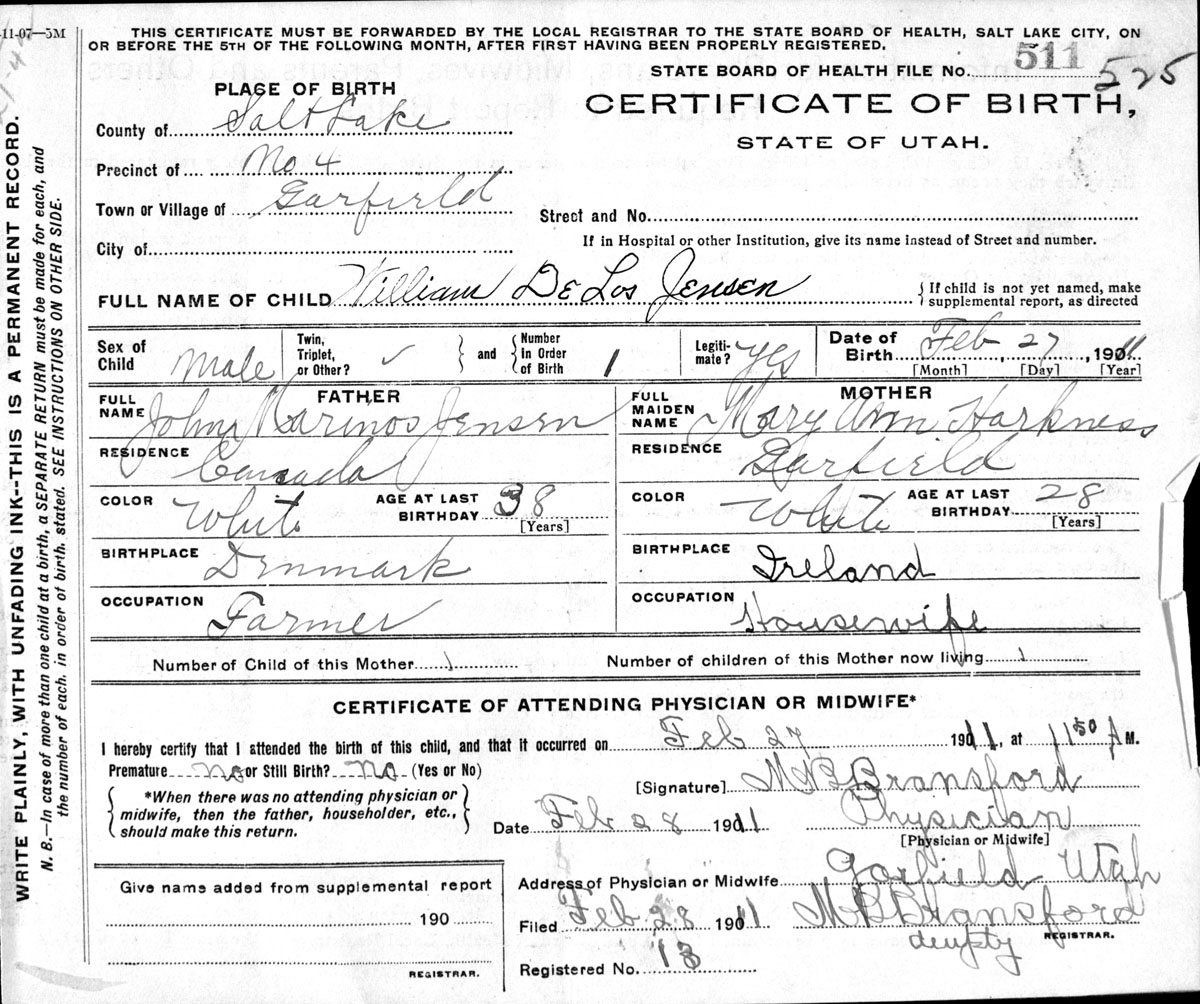 11-07—5M
THIS CERTIFICATE MUST BE FORWARDED BY THE LOCAL REGISTRAR TO THE STATE BOARD OF HEALTH, SALT LAKE CITY, ON
OR BEFORE THE 5TH OF THE FOLLOWING MONTH, AFTER FIRST HAVING BEEN PROPERLY REGISTERED.
STATE BOARD OF HEALTH FILE No. 511 525
CERTIFICATE OF BIRTH,
STATE OF UTAH.
PLACE OF BIRTH
County of Salt Lake
Precinct of No 4
Town or Village of Garfield
Street and No.
City of
If in Hospital or other Institution, give its name instead of Street and number.
FULL NAME OF CHILD William De Los Jensen
{ If child is not yet named, make
supplemental report, as directed
Sex of Child Male
Twin, Triplet, or Other? ✓ } and { Number In Order of Birth 1
Legiti-mate? Yes
Date of Birth Feb 27, 1911
[Month] [Day] [Year]
FATHER
FULL NAME John Marinos Jensen
RESIDENCE Canada
COLOR White
AGE AT LAST BIRTHDAY 38
[Years]
BIRTHPLACE Denmark
OCCUPATION Farmer
MOTHER
FULL MAIDEN NAME Mary Ann Harkness
RESIDENCE Garfield
COLOR White
AGE AT LAST BIRTHDAY 28
[Years]
BIRTHPLACE Ireland
OCCUPATION Housewife
Number of Child of this Mother 1
Number of children of this Mother now living 1
CERTIFICATE OF ATTENDING PHYSICIAN OR MIDWIFE*
I hereby certify that I attended the birth of this child, and that it occurred on Feb 27 1911, at 11 50 A M.
Premature No or Still Birth? No (Yes or No)
*When there was no attending physician or
midwife, then the father, householder, etc.,
should make this return.
[Signature] M B Bransford
Date Feb 28 1911
Physician
[Physician or Midwife]
Address of Physician or Midwife Garfield Utah
Filed Feb 28 1911 M B Bransford
deupty REGISTRAR.
Registered No. 13
Give name added from supplemental report
190
REGISTRAR.
WRITE PLAINLY, WITH UNFADING INK--THIS IS A PERMANENT RECORD.
N. B.—In case of more than one child at a birth, a SEPARATE RETURN must be made for each, and
the number of each, in order of birth, stated. SEE INSTRUCTIONS ON OTHER SIDE.